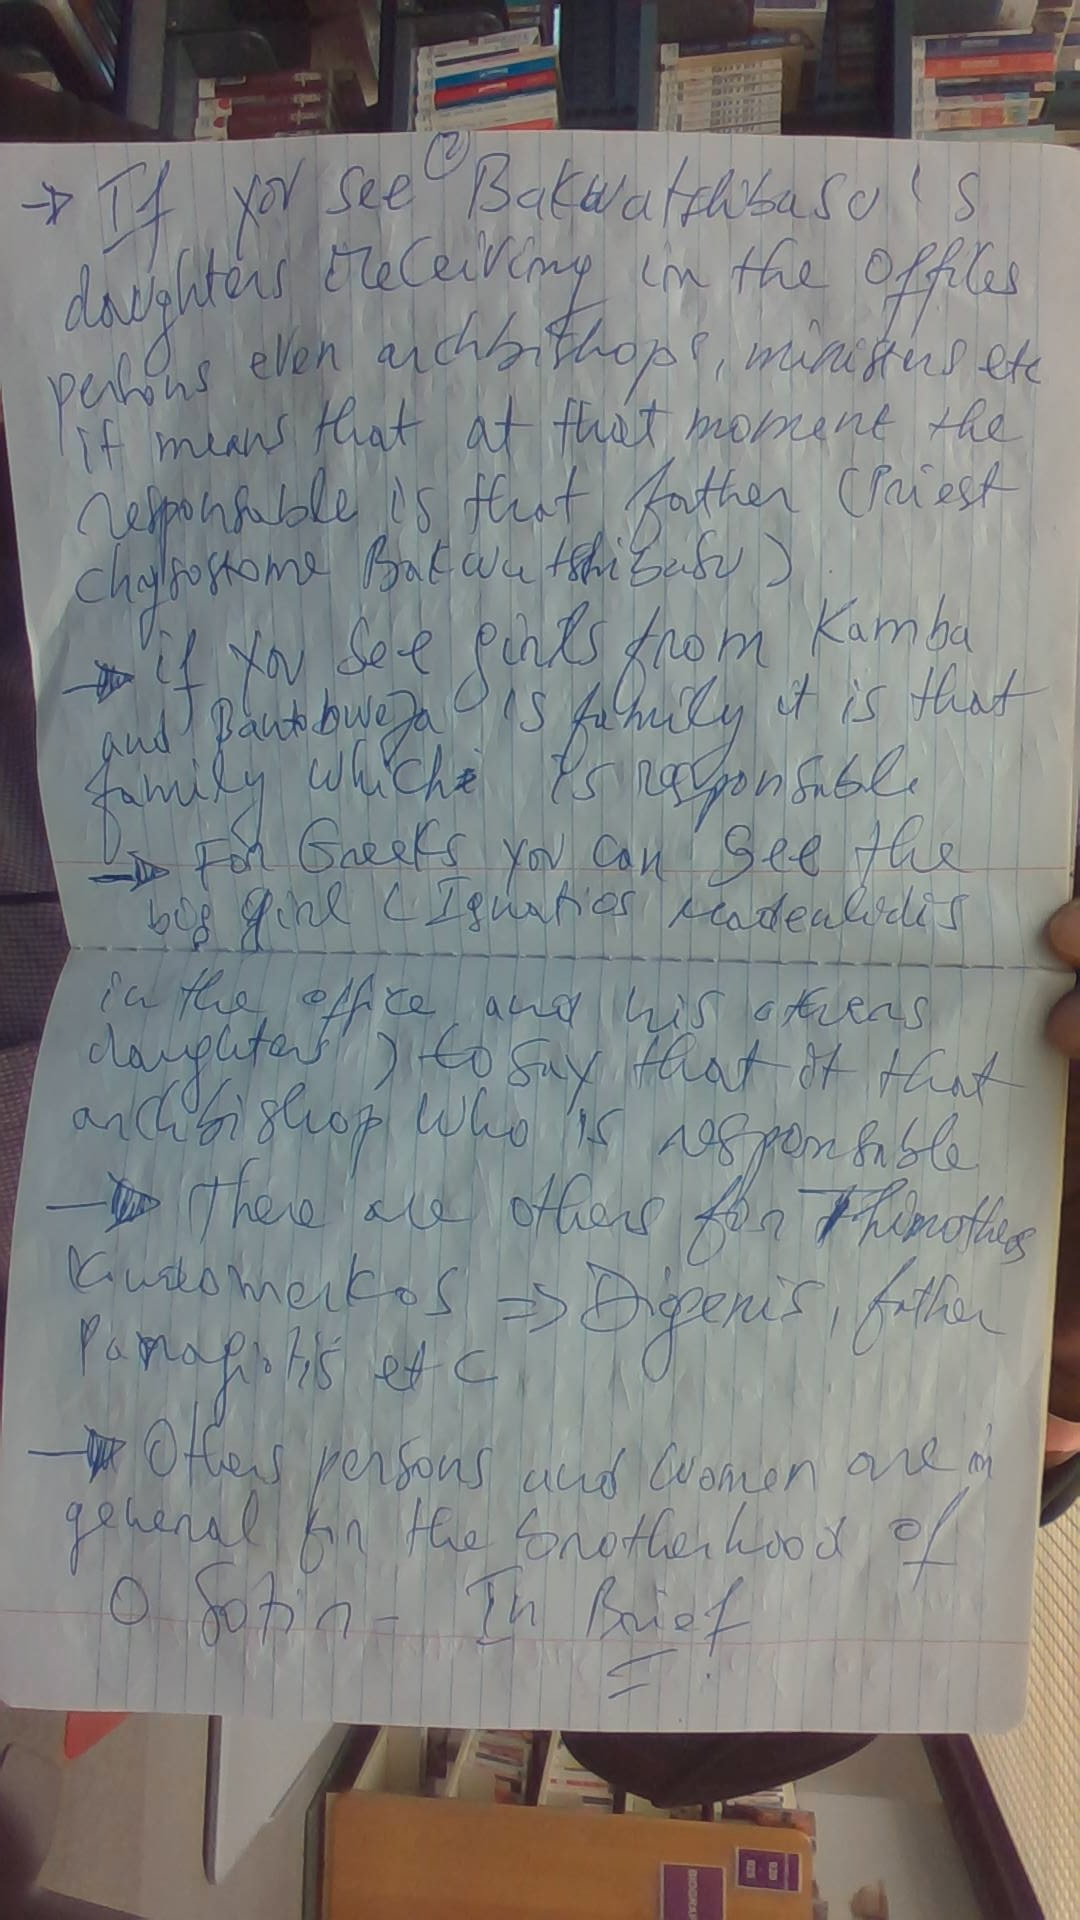 ②
→ If you see Bakwatshibasu's
daughters receiving in the offices
persons even archbishops, ministers etc
it means that at that moment the
responsable is that father (Priest
chrysostome Bakwatshibasu)
→ if you see girls from Kamba
and is family it is that
family which is responsable
→ For Greeks you can see the
big girl (Ignatios
in the office and his others
daughters) to say that it that
archbishop who is responsable
→ There are others for Thimotheos
⇒ Digenis, father
Panagiotis etc
→ Others persons and women are in
general for the brotherhood of
O Sotir - In Brief
BIOGRAP